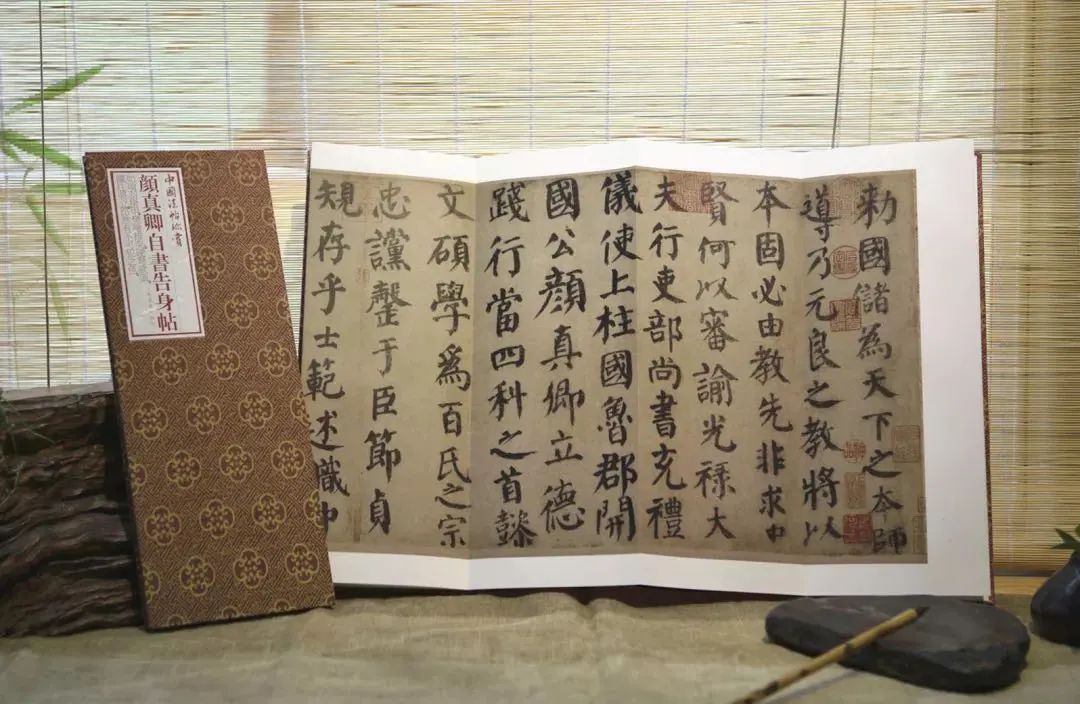 勑國儲為天下之本師
導乃元良之教將以
本固必由教先非求中
賢何以審諭光祿大
夫行吏部尚書充禮
儀使上柱國魯郡開
國公顏真卿立德
踐行當四科之首懿
文碩學爲百氏之宗
忠讜罄于臣節貞
規存乎士範述職中
中國法帖珍賞
顏真卿自書告身帖